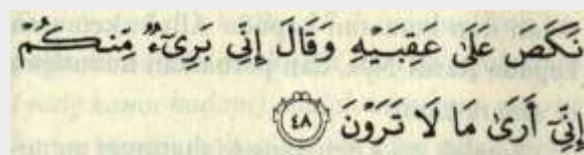 نَكَصَ عَلَىٰ عَقِبَيْهِ وَقَالَ إِنِّي بَرِيٓءٌ مِّنكُمْ
إِنِّيٓ أَرَىٰ مَا لَا تَرَوْنَ ٤٨